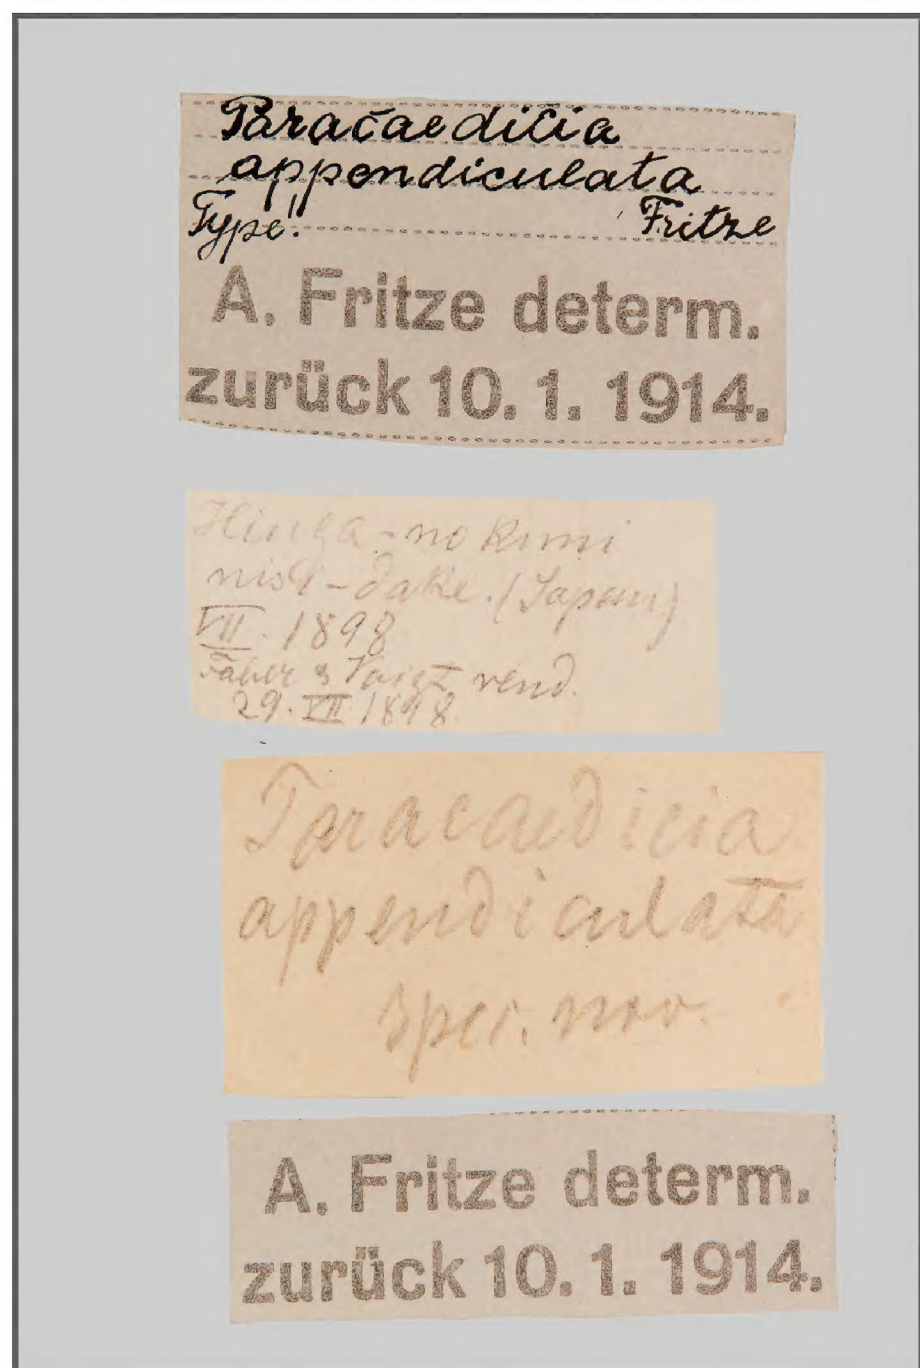 Paracaedicia
appendiculata
Type! Fritze
A. Fritze determ.
zurück 10. 1. 1914.
Hiuga-no Kuni
nisi-dake. (Japan)
VII. 1898
Faber & Voigt vend.
29. XII 1898.
Paracaedicia
appendiculata
spec. nov.
A. Fritze determ.
zurück 10. 1. 1914.